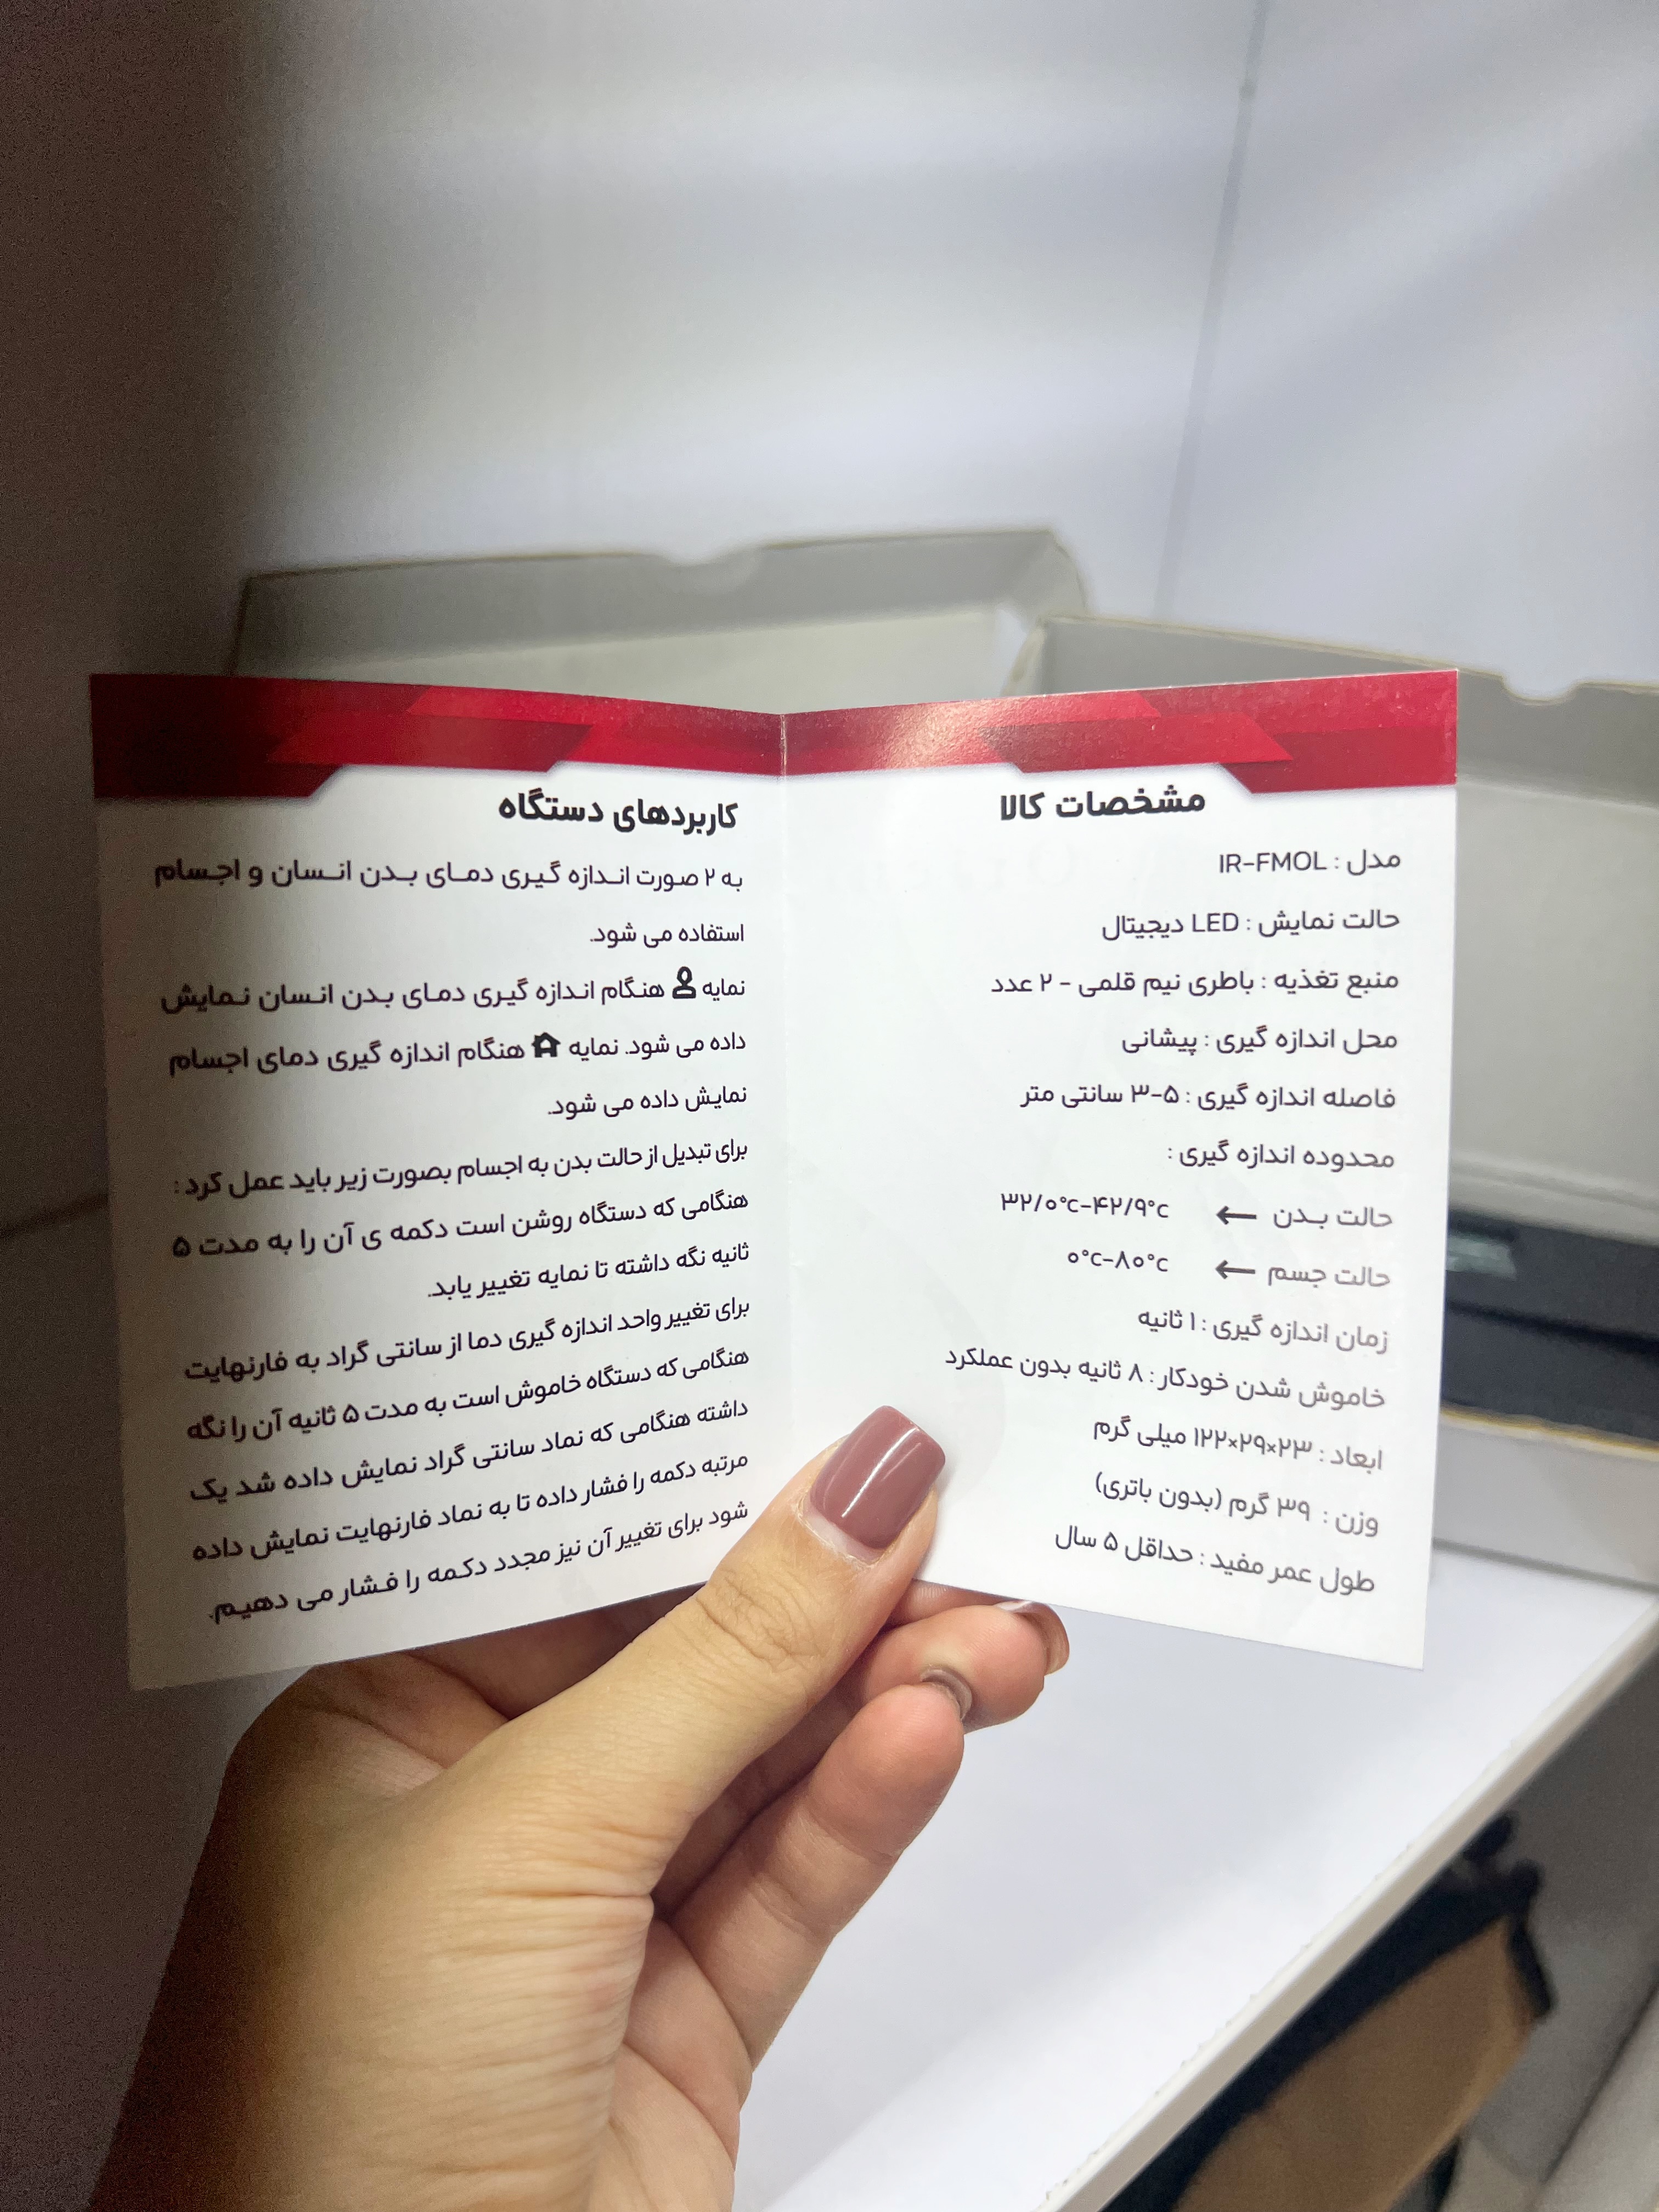 مشخصات کالا
مدل : IR-FMOL
حالت نمایش : LED دیجیتال
منبع تغذیه : باطری نیم قلمی - ۲ عدد
محل اندازه گیری : پیشانی
فاصله اندازه گیری : ۵-۳ سانتی متر
محدوده اندازه گیری :
حالت بـدن ← ۳۲/۰°c-۴۲/۹°c
حالت جسم ← ۰°c-۸۰°c
زمان اندازه گیری : ۱ ثانیه
خاموش شدن خودکار : ۸ ثانیه بدون عملکرد
ابعاد : ۲۳×۲۹×۱۲۲ میلی گرم
وزن : ۳۹ گرم (بدون باتری)
طول عمر مفید : حداقل ۵ سال
کاربردهای دستگاه
به ۲ صورت انـدازه گـیری دمـای بـدن انـسان و اجـسام
استفاده می شود.
نمایه هنگام انـدازه گـیری دمـای بـدن انـسان نـمایش
داده می شود. نمایه هنگام اندازه گیری دمای اجسام
نمایش داده می شود.
برای تبدیل از حالت بدن به اجسام بصورت زیر باید عمل کرد :
هنگامی که دستگاه روشن است دکمه ی آن را به مدت ۵
ثانیه نگه داشته تا نمایه تغییر یابد.
برای تغییر واحد اندازه گیری دما از سانتی گراد به فارنهایت
هنگامی که دستگاه خاموش است به مدت ۵ ثانیه آن را نگه
داشته هنگامی که نماد سانتی گراد نمایش داده شد یک
مرتبه دکمه را فشار داده تا به نماد فارنهایت نمایش داده
شود برای تغییر آن نیز مجدد دکـمه را فـشار می دهیـم.